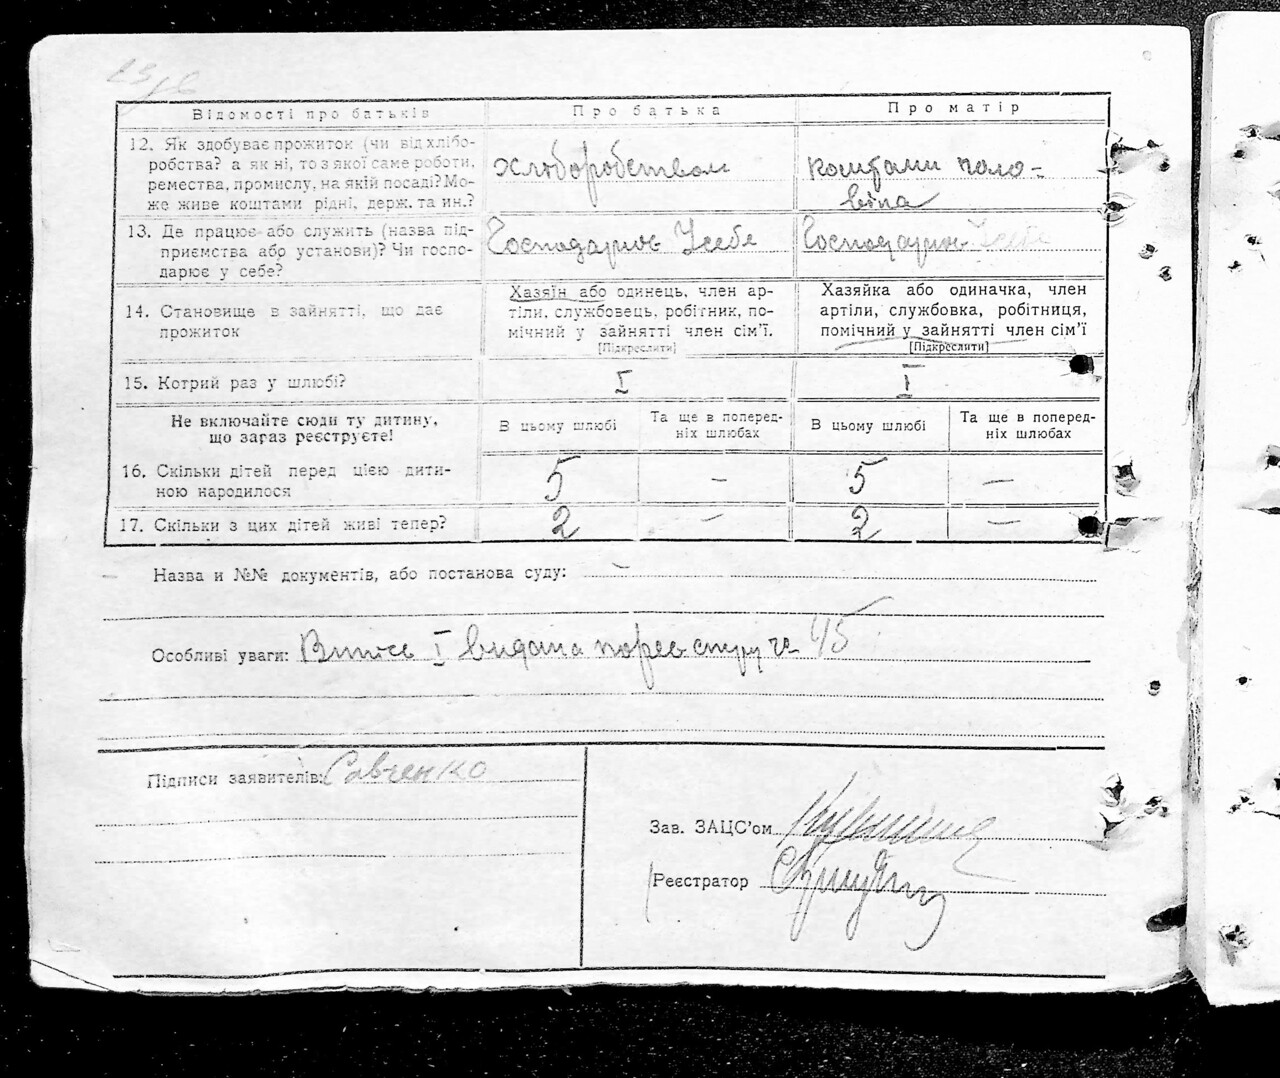 Відомості про батьків Про батька Про матір
12. Як здобуває прожиток (чи від хлібо-
робства? а як ні, то з якої саме роботи,
ремества, промислу, на якій посаді? Мо-
же живе коштами рідні, держ. та ин.?
хліборобством
коштами чоло-
віка
13. Де працює або служить (назва під-
приємства або установи)? Чи госпо-
дарює у себе?
Господарює У себе
Господарює У себе
14. Становище в зайнятті, що дає
прожиток
Хазяїн або одинець, член ар-
тіли, службовець, робітник, по-
мічний у зайнятті член сім’ї.
[Підкреслити]
Хазяйка або одиначка, член
артіли, службовка, робітниця,
помічний у зайнятті член сім’ї
[Підкреслити]
15. Котрий раз у шлюбі? I I
Не включайте сюди ту дитину,
що зараз реєструєте!
В цьому шлюбі
Та ще в поперед-
ніх шлюбах
В цьому шлюбі
Та ще в попе­ред-
ніх шлюбах
16. Скільки дітей перед цією дити-
ною народилося
5 — 5 —
17. Скільки з цих дітей живі тепер? 2 — 2 —
Назва и №№ документів, або постанова суду: —
Особливі уваги: Випись I видана по реєстру 45
Підписи заявителів: Савченко
Зав. ЗАЦС’ом
Реєстратор